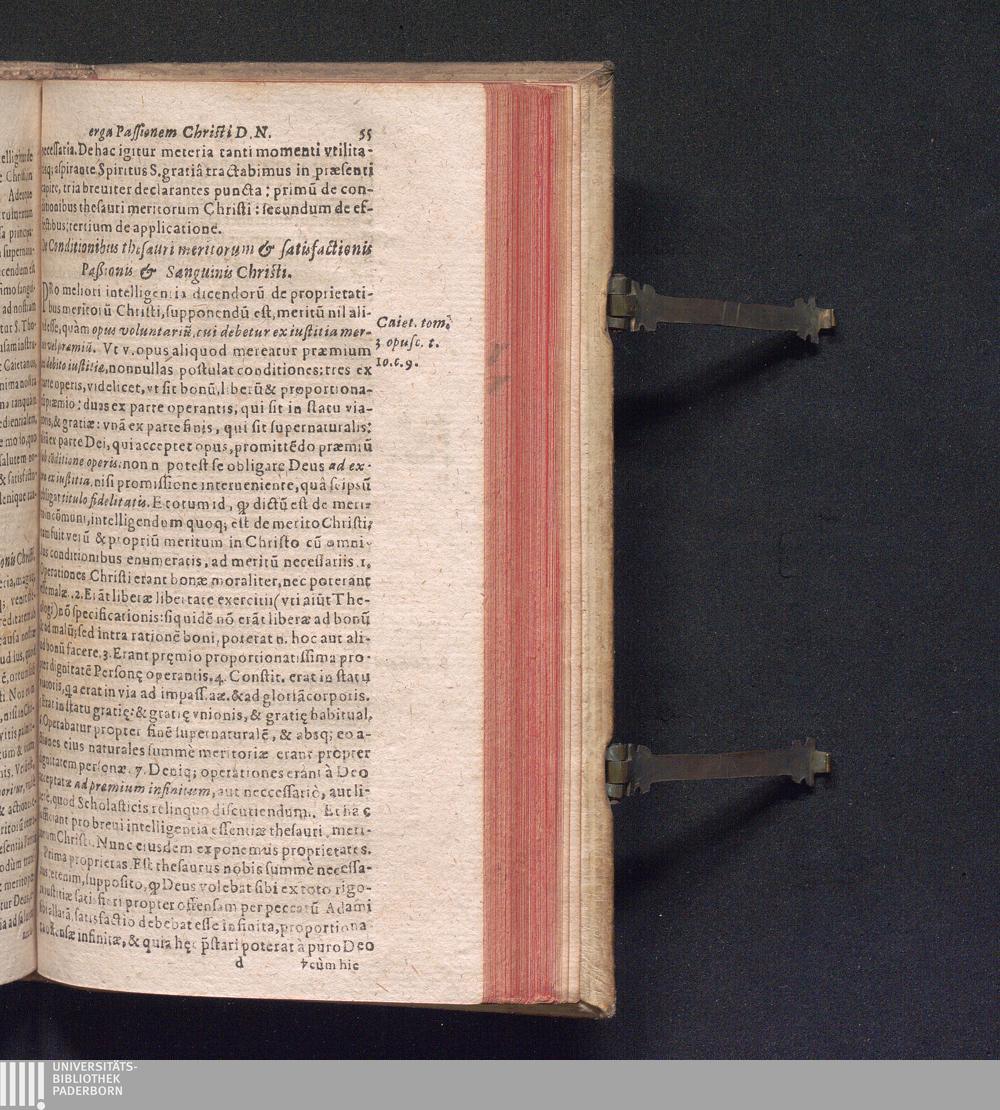 erga Paſſionem Chriſti D. N. 55
neceſſaria. De hac igitur meteria tanti momenti vtilita-
aſpirante Spiritus S. gratiâ tractabimus in præſenti
capite, tria breuiter declarantes puncta: primū de con-
ditionibus theſauri meritorum Chriſti: ſecundum de ef-
fectibus; tertium de applicatione.
De Conditionibus theſauri meritorum & ſatisfactionis
Paßionis & Sanguinis Chriſti.
PRo meliori intelligentia dicendorū de proprietati-
bus meritorū Chriſti, ſupponendū eſt, meritū nil ali-
eſſe, quàm opus voluntariū, cui debetur ex iuſtitia mer-
vel præmiū. Vt v. opus aliquod mereatur præmium
debito iuſtitiæ, nonnullas poſtulat conditiones: tres ex
parte operis, videlicet, vt ſit bonū, liberū & proportiona-
præmio: duas ex parte operantis, qui ſit in ſtatu via-
toris, & gratiæ: vnā ex parte finis, qui ſit ſupernaturalis:
ex parte Dei, qui acceptet opus, promittēdo præmiū
cōditione operis: non n poteſt ſe obligare Deus ad ex-
ex iuſtitia, niſi promiſſione interueniente, quâ ſeipsū
obligat titulo fidelitatis. Et totum id, qꝫ dictū eſt de meri-
in cōmuni, intelligendum quoqꝫ eſt de merito Chriſti;
fuit verū & propriū meritum in Chriſto cū omni-
conditionibus enumeratis, ad meritū neceſſariis. 1.
Operationes Chriſti erant bonæ moraliter, nec poterant
eſſe malæ. 2. Erāt liberæ libertate exercitii (vti aiūt The-
ologi) nō ſpecificationis: ſiquidē nō erāt liberæ ad bonū
ad malū; ſed intra rationē boni, poterat n. hoc aut ali-
bonū facere. 3. Erant pręmio proportionatiſſima pro-
pter dignitatē Perſonę operantis. 4. Conſtit. erat in ſtatu
viatoris, qa erat in via ad impaſſ. aæ. & ad gloriā corporis.
Erat in ſtatu gratię: & gratię vnionis, & gratię habitual.
Operabatur propter finē ſupernaturalē, & absqꝫ eo a-
ctiones eius naturales ſummè meritoriæ erant propter
dignitatem perſonæ. 7. Deniqꝫ operationes erant à Deo
acceptatæ ad præmium infinitum, aut neceſſariò, aut li-
quod Scholaſticis relinquo diſcutiendum. Et hæc
ſufficiant pro breui intelligentia eſſentiæ theſauri meri-
torum Chriſti. Nunc eiusdem exponemus proprietates.
Prima proprietas. Eſt theſaurus nobis ſummè neceſſa-
etenim, ſuppoſito, qꝫ Deus volebat ſibi ex toto rigo-
iuſtitiæ ſatisfieri propter offenſam per peccatū Adami
ſatisfactio debebat eſſe infinita, proportiona-
ta offenſæ infinitæ, & quia hęc p̄ſtari poterat à puro Deo
d 4 cùm hic
Caiet. tom.
3 opuſc. t.
10. c. 9.
UNIVERSITÄTS-
BIBLIOTHEK
PADERBORN